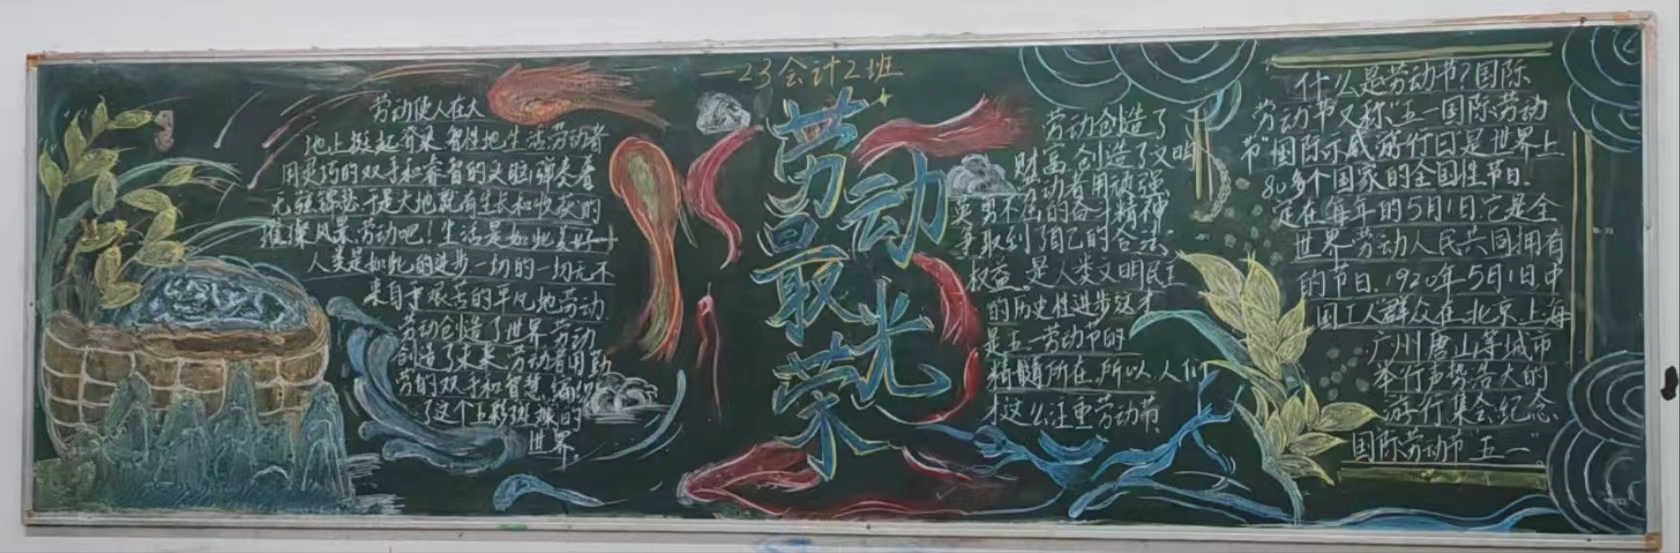 23会计2班
劳动最光荣
劳动使人在大
地上挺起脊梁 智性地生活劳动者
用灵巧的双手和睿智的头脑弹奏着
于是大地就有生长和收获的
风景 劳动吧！生活是如此美好
人类是如此的进步一切的一切无不
来自于艰苦的平凡地劳动
劳动创造了世界 劳动
创造了未来 劳动者用勤
劳的双手和智慧 编织
了这个五彩斑斓的
世界。
劳动创造了
财富 创造了文明
劳动者用顽强
英勇不屈的奋斗精神
争取到了自己的合法
权益。是人类文明民主
的历史性进步这才
是五一劳动节的
精髓所在.所以人们
才这么注重劳动节.
什么是劳动节？国际
劳动节又称"五一国际劳动
节"国际示威游行日"是世界上
80多个国家的全国性节日.
定在每年的5月1日.它是全
世界劳动人民共同拥有
的节日.1920年5月1日.中
国工人群众在北京.上海
广州唐山等城市
举行声势浩大的
游行集会纪念
国际劳动节"五一"